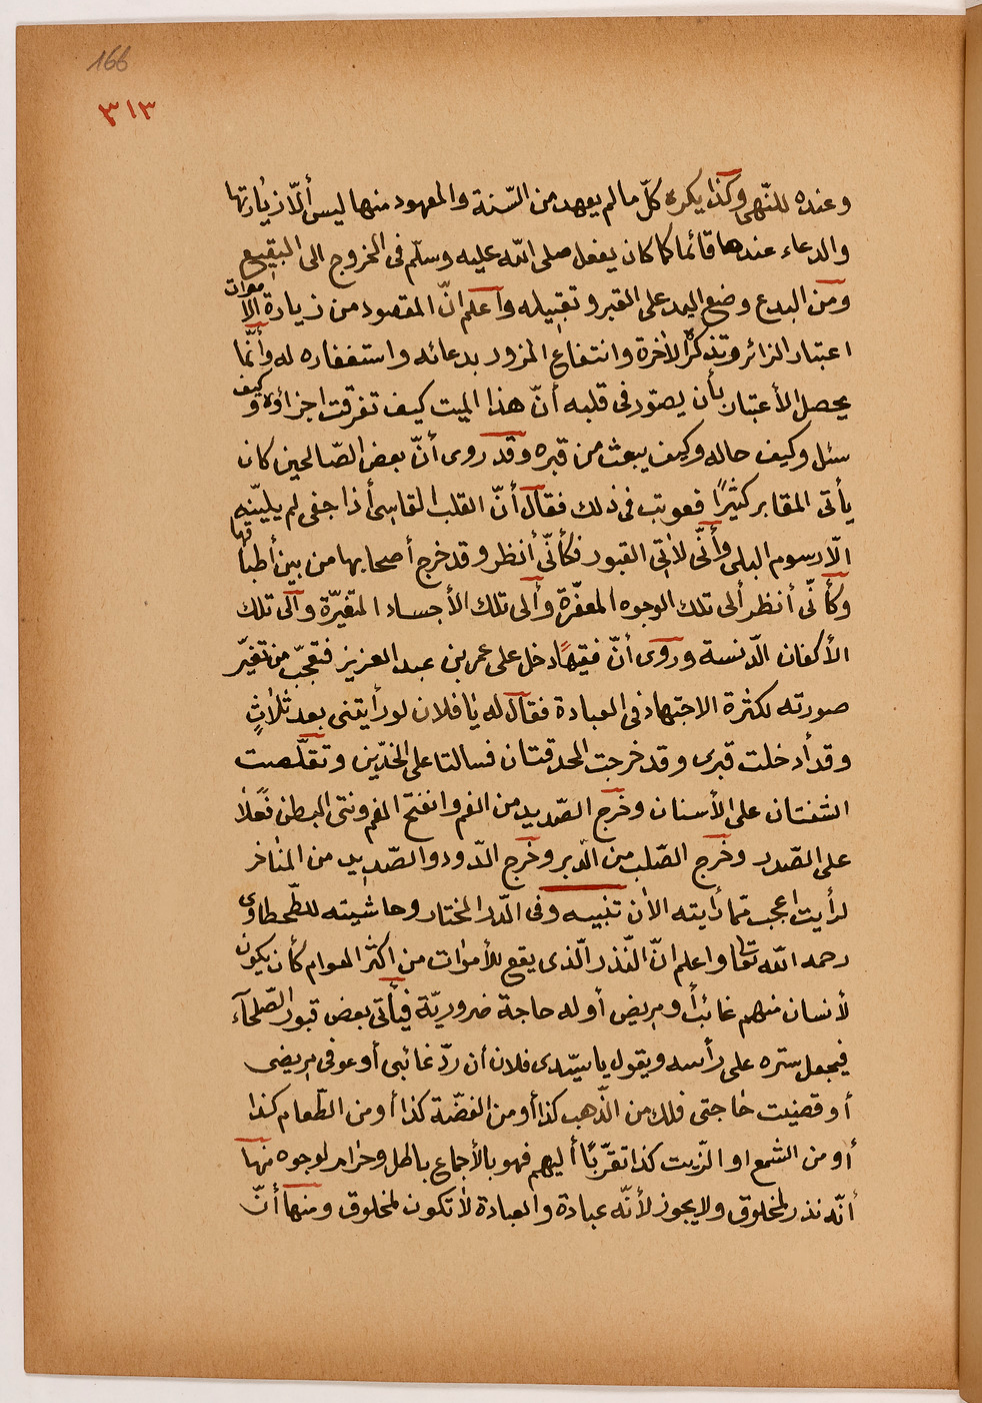 166
٣١٣
وعنده للنّهى وكذا يكره كلّ ما لم يعهد من السّنة والمعهود منها ليس ألّا زيارتها
والدعاء عندها قائما كما كان يفعل صلى الله عليه وسلّم فى الخروج الى البقيع
ومن البدع وضع اليد على القبر وتقبيله واعلم انّ المقصود من زيارة الاموات
اعتبار الزائر وتذكرة الأخرة وانتفاع المزور بدعائه واستغفاره له وأنّما
يحصل الأعتبار بأن يصوّر فى قلبه أنّ هذا الميت كيف تفرقت اجزاؤه وكيف
سئل وكيف حاله وكيف يبعث من قبره وقد روى أنّ بعض الصّالحين كان
يأتى المقابر كثيرًا فعوتب فى ذلك فقال أنّ القلب القاسى أذا جفى لم يليّنه
الّا رسوم البلى وأنّى لاٰتى القبور فكأنّى أنظر وقد خرج أصحابها من بين أطباقها
وكأنّى أنظر ألى تلك الوجوه المعفّرة وألى تلك الأجساد المتغيّرة وألى تلك
الأكفان الدّنسة وروى أنّ فقيهًا دخل على عمر بن عبد العزيز فتعجّب من تغيّر
صورته لكثرة الاجتهاد فى العبادة فقال له يٰا فلان لو رأيتنى بعد ثلاٰثٍ
وقد أدخلت قبرى وقد خرجت الحدقتان فسالتا على الخدّين وتقلّصت
الشفتان على الأسنان وخرج الصّديد من الفم وانفتح الفم ونتى البطن فعلاٰ
على الصّدر وخرج الصّلب من الدّبر وخرج الدّود والصّديد من المنٰاخر
لرأيت اعجب ممّا رأيته الاٰن تنبيه وفى الدّر المختار وحاشيته للطّحطاوى
رحمه الله تعالى واعلم انّ النّذر الّذى يقع للأموٰات من اكثر العوام كأن يكون
لأنسان منهم غائبأ ومريض أو له حاجة ضروريّة فيأتى بعض قبور الصّلحآء
فيجعل ستره على رأسه ويقول يا سيّدى فلان أن ردّ غائبى أو عوفى مريضى
أو قضيت حٰاجتى فلك من الذّهب كذا أو من الفضّة كذا أو من الطّعام كذا
أو من الشمع او الزّيت كذا تقرّبًا أليهم فهو بالأجماع باطل وحرٰام لوجوه منها
أنّه نذر لمخلوق ولا يجوز لأنّه عبادة والعبادة لاٰ تكون لمخلوق ومنها أنّ